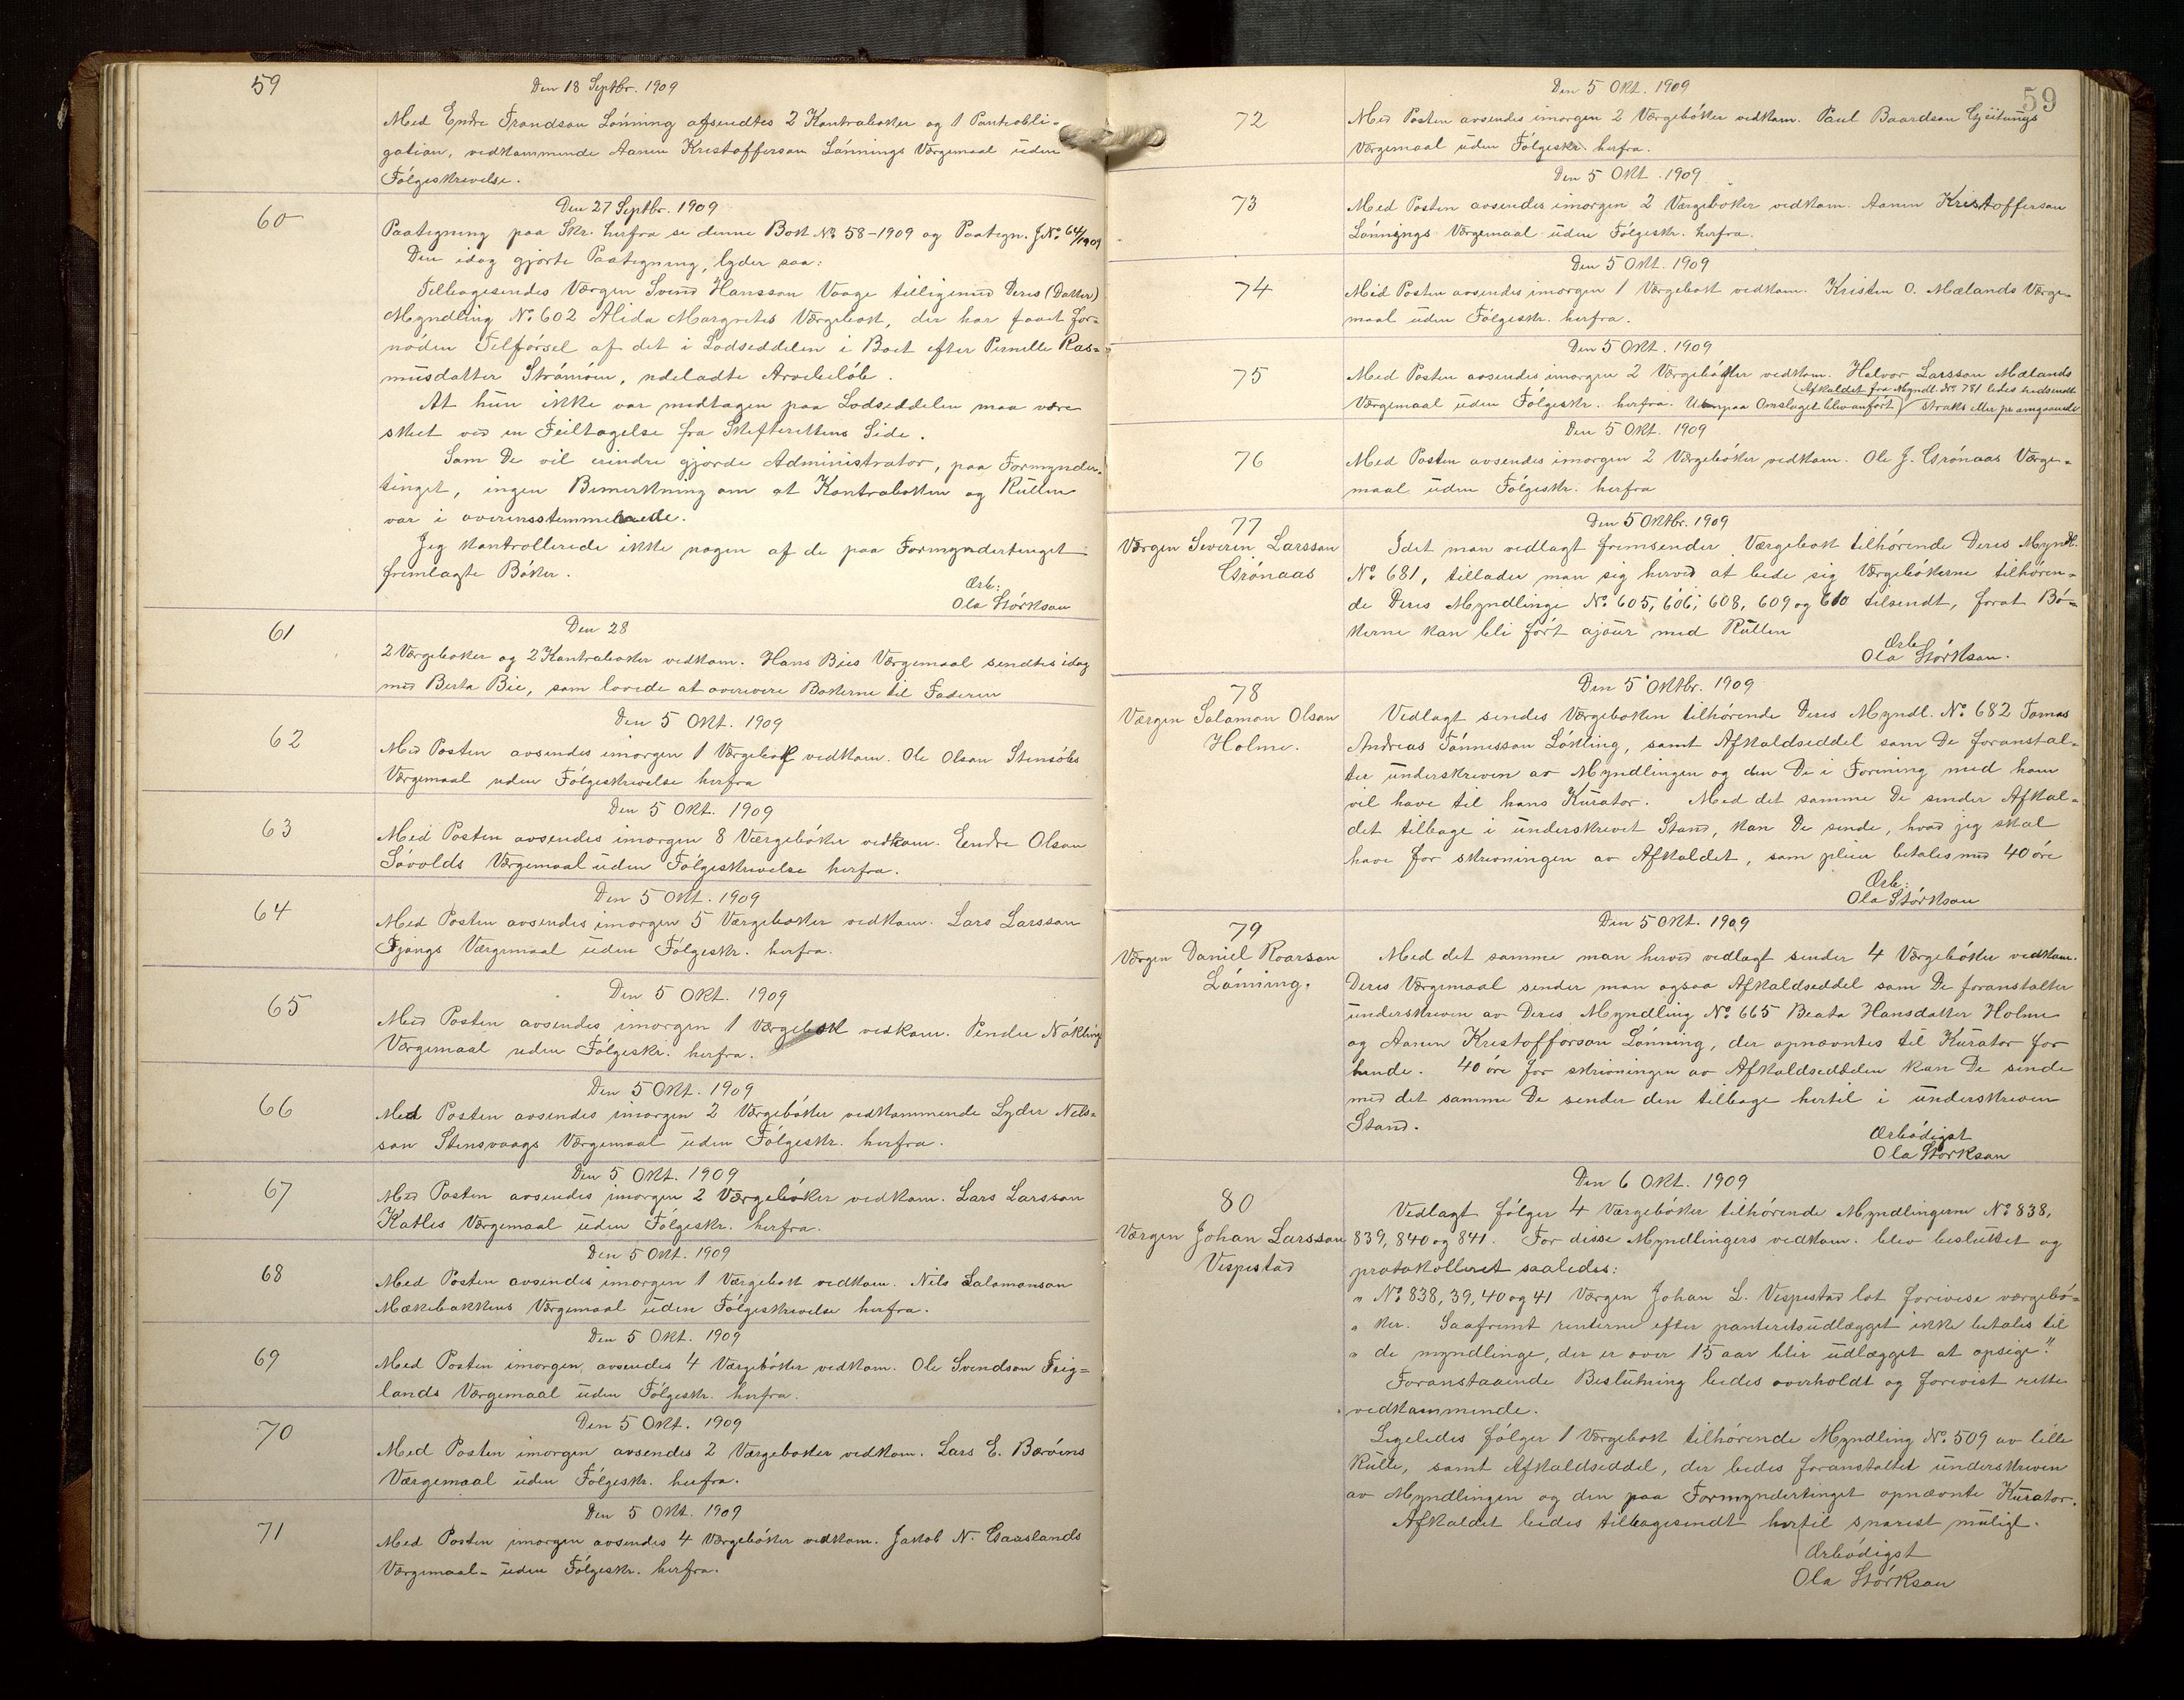 59
Den 18 Septbr. 1909
Med Endre Trondson Lönning afsendtes 2 Kontraboker og 1 Panteobli-
gation, vedkommende Aanen Kristofferson Lönnings Værgemaal uden
Fölgeskrivelse.
60
Den 27 Septbr. 1909
Paategning paa Skr. herfra se denne Bok No 58-1909 og Paategn. J No 64/1909
Den idag gjorte Paategning, lyder saa:
Tilbagesendes Værgen Svend Hansson Vaage tilligemed Deres (Datter)
Myndling No 602 Alida Margretes Værgebok, der har faaet for-
nöden Tilförsel af det i Lodseddelen i Boet efter Pernille Ras-
musdatter Strömöen, udeladte Arvebelöb.
At hun ikke var medtagen paa Lodseddelen maa være
skeet ved en Feiltagelse fra Skifterettens Side.
Som De vil erindre gjorde Administrator, paa Formynder-
tinget, ingen Bemerkning om at Kontraboken og Rullen
var i overensstemmelse.
Jeg kontrollerede ikke nogen af de paa Formyndertinget
fremlagte Böker.
Ærb.
Ola Störkson
61
Den 28
2 Værgeboker og 2 Kontraboker vedkom. Hans Bies Værgemaal sendtes idag
med Berta Bie, som lovede at overlevere Bokerne til Faderen
62
Den 5 Okt. 1909
Med Posten avsendes imorgen 1 Værgebok vedkom. Ole Olson Stensöes
Værgemaal uden Fölgeskrivelse herfra
63
Den 5 Okt. 1909
Med Posten avsendes imorgen 8 Værgeböker vedkom. Endre Olson
Sövolds Værgemaal uden Fölgeskrivelse herfra.
64
Den 5 Okt. 1909
Med Posten avsendes imorgen 5 Værgeboker vedkom. Lars Larsson
Tjongs Værgemaal uden Fölgeskr. herfra.
65
Den 5 Okt. 1909
Med Posten avsendes imorgen 1 Værgebok vedkom. Peder Nökling
Værgemaal uden Fölgeskr. herfra.
66
Den 5 Okt. 1909
Med Posten avsendes imorgen 2 Værgeböker vedkommende Lyder Nels-
son Stensvaags Værgemaal uden Fölgeskr. herfra.
67
Den 5 Okt. 1909
Med Posten avsendes imorgen 2 Værgeböker vedkom. Lars Larsson
Katles Værgemaal uden Fölgeskr. herfra.
68
Den 5 Okt. 1909
Med Posten avsendes imorgen 1 Værgebok vedkom. Nils Salomonson
Mækebakkens Værgemaal uden Fölgeskrivelse herfra.
69
Den 5 Okt. 1909
Med Posten imorgen avsendes 4 Værgeböker vedkom. Ole Svendson Teig-
lands Værgemaal uden Fölgeskr. herfra.
70
Den 5 Okt. 1909
Med Posten imorgen avsendes 2 Værgeboker vedkom. Lars E. Baröens
Værgemaal uden Fölgeskr. herfra.
71
Den 5 Okt. 1909
Med Posten imorgen avsendes 4 Værgeböker vedkom. Jakob N. Gaaslands
Værgemaal uden Fölgeskr. herfra.
59
Den 5 Okt. 1909
72
Med Posten avsendes imorgen 2 Værgeböker vedkom. Paul Baardson Gjeitungs
Værgemaal uden Fölgeskr. herfra.
Den 5 Okt. 1909
73
Med Posten avsendes imorgen 2 Værgeboker vedkom. Aanen Kristofferson
Lönnings Værgemaal uden Fölgeskr. herfra.
Den 5 Okt. 1909
74
Med Posten avsendes imorgen 1 Værgebok vedkom. Kristen O. Mælands Værge-
maal uden Fölgeskr. herfra.
Den 5 Okt. 1909
75
Med Posten avsendes imorgen 2 Værgeböker vedkom. Halvor Larsson Mælands
Værgemaal uden Fölgeskr. herfra. Utenpaa Omslaget blev anfört
(Afkaldet fra Myndl. No 781 bedes indsendt
straks eller pr omgaaende
Den 5 Okt. 1909
76
Med Posten avsendes imorgen 2 Værgeböker vedkom. Ole J. Grönaas Værge-
maal uden Fölgeskr. herfra
77
Værgen Severin Larsson
Grönaas
Den 5 Oktbr. 1909
Idet man vedlagt fremsender Værgebok tilhörende Deres Myndl.
No 681, tillader man sig herved at bede sig Værgebökerne tilhören-
de Deres Myndlinge No 605, 606, 608, 609 og 610 tilsendt, forat Bö-
kerne kan bli fört ajour med Rullen
Ærb
Ola Störkson.
78
Værgen Salamon Olson
Holme.
Den 5 Oktbr. 1909
Vedlagt sendes Værgeboken tilhörende Deres Myndl. No 682 Tomas
Andreas Tönnesson Lökling, samt Afkaldseddel som De foranstal-
ter underskreven av Myndlingen og den De i Forening med ham
vil have til hans Kurator. Med det samme De sender Afkal-
det tilbage i underskrevet Stand, kan De sende, hvad jeg skal
have for skrivningen av Afkaldet, som pleier betales med 40 öre
Ærb:
Ola Störkson
79
Værgen Daniel Roarson
Lönning.
Den 5 Okt. 1909
Med det samme man herved vedlagt sender 4 Værgeböker vedkom.
Deres Værgemaal sender man ogsaa Afkaldseddel som De foranstalter
underskreven av Deres Myndling No 665 Beata Hansdatter Holme
og Aanen Kristofferson Lönning, der opnævntes til Kurator for
hende. 40 öre for skrivningen av Afkaldseddelen kan De sende
med det samme De sender den tilbage hertil i underskreven
Stand.
Ærbödigst
Ola Störkson
80
Værgen Johan Larsson
Vespestad
Den 6 Okt. 1909
Vedlagt fölger 4 Værgeböker tilhörende Myndlingerne No 838,
839, 840 og 841. For disse Myndlingers vedkom. blev besluttet og
protokolleret saaledes:
" No 838, 39, 40 og 41 Værgen Johan L. Vespestad lot forevise værgebö-
" ker. Saafremt renterne efter panteretsudlægget ikke betales til
" de myndlinge, der er over 15 aar blir udlægget at opsige."
Foranstaaende Beslutning bedes overholdt og forevist rette
vedkommende.
Ligeledes fölger 1 Værgebok tilhörende Myndling No 509 av lille
Rulle, samt Afkaldseddel, der bedes foranstaltet underskreven
av Myndlingen og den paa Formyndertinget opnævnte Kurator.
Afkaldet bedes tilbagesendt hertil snarest muligt.
Ærbödigst
Ola Störkson